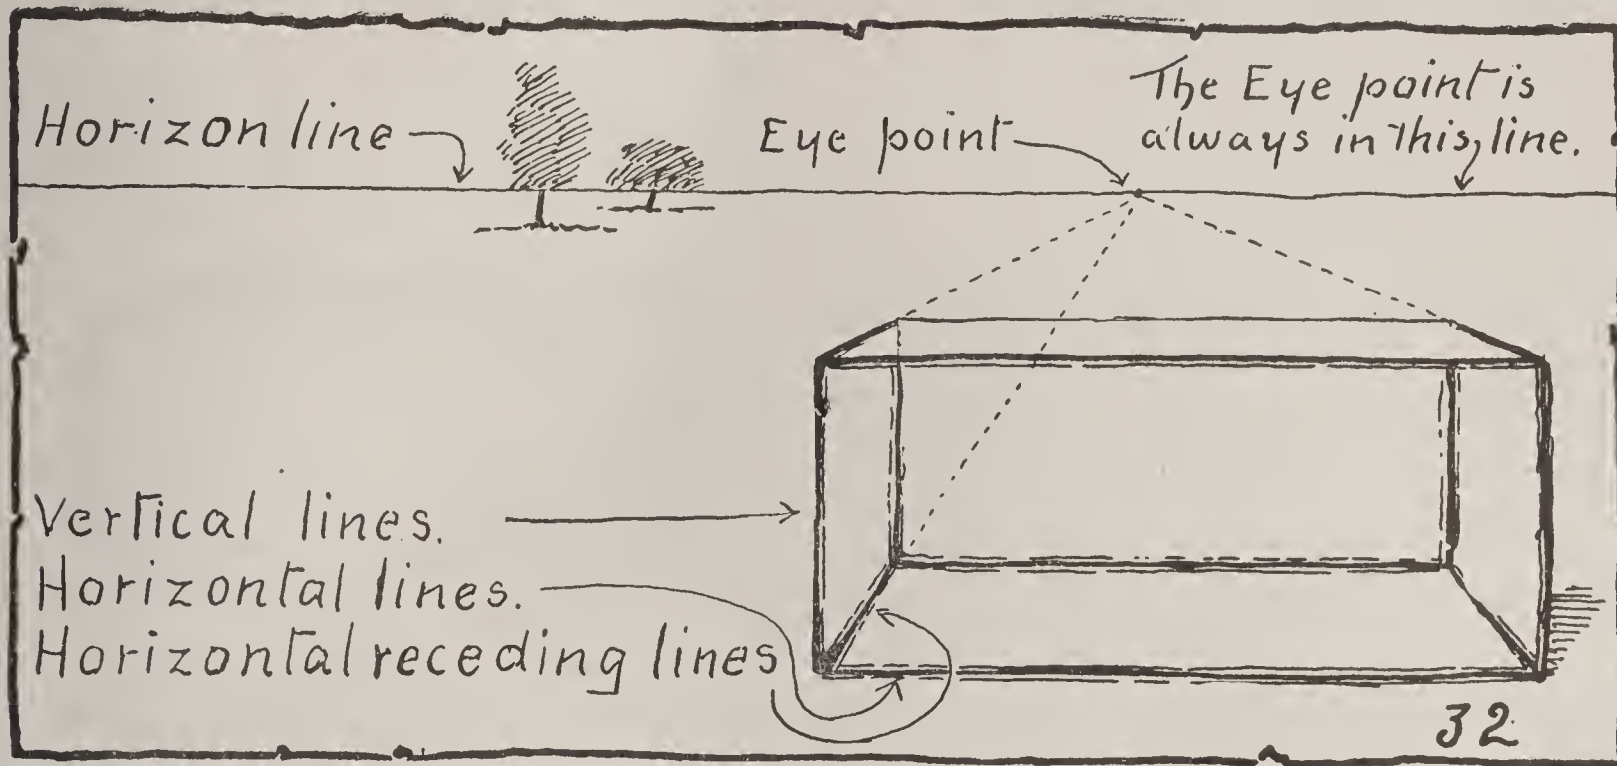 Horizon line
Eye point
The Eye point is
always in this, line.
Vertical lines.
Horizontal lines.
Horizontal receding lines
32